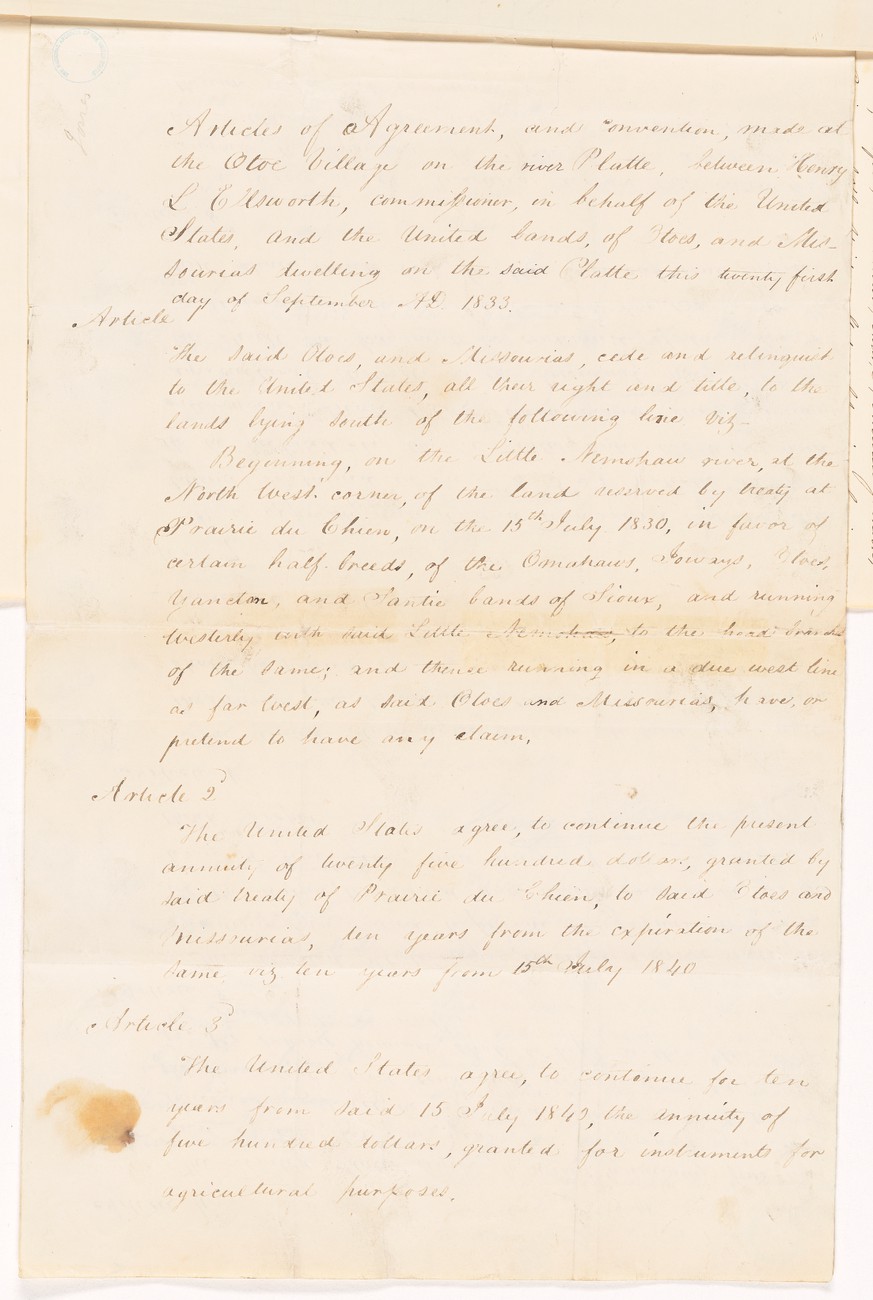 Articles of Agreement, and convention, made at
the Otoe Village on the river Platte, between Henry
L Ellsworth, commissioner, in behalf of the United
States, and the United bands, of Otoes, and Mis-
sourias dwelling on the said Platte this twenty first
day of September AD. 1833.
Article
The said Otoes, and Missourias, cede and relinquish
to the United States, all their right and title, to the
lands lying south of the following line viz-
Beginning, on the Little Nemohaw river, at the
North West corner, of the land reserved by treaty at
Prairie du Chien, on the 15th July 1830, in favor of
certain half-breeds, of the Omahaws, Ioways, Otoes,
Yancton, and Santie bands of Sioux, and running
westerly with said Little Nemohaw, to the head branches
of the same; and thence running in a due west line
as far west, as said Otoes and Missourias, have, or
pretend to have any claim.
Article 2d
The United States agree, to continue the present
annuity of twenty five hundred dollars, granted by
said treaty of Prairie du Chien, to said Otoes and
Missourias, ten years from the expiration of the
same viz ten years from 15th July 1840
Article 3d
The United States agree, to continue for ten
years from said 15 July 1840, the annuity of
five hundred dollars, granted for instuments for
agricultural purposes.